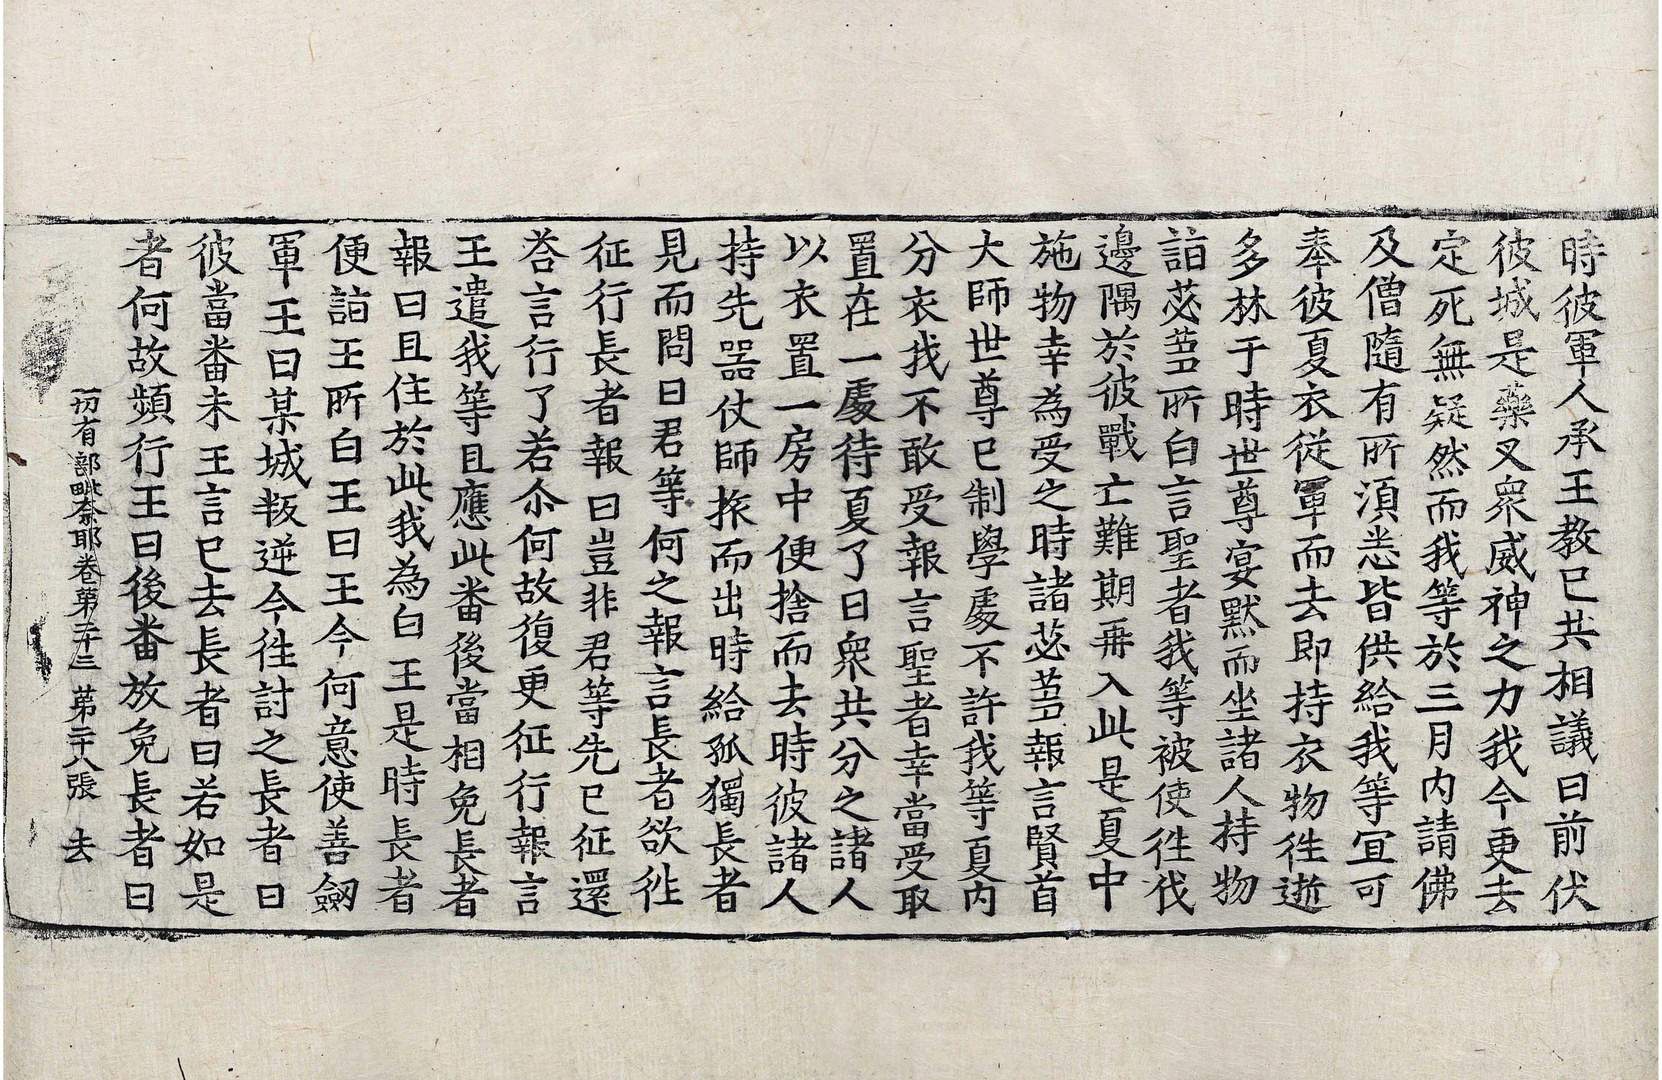 時彼軍人承王教已共相議曰前伏
彼城是藥叉衆威神之力我今更去
定死無疑然而我等於三月內請佛
及僧隨有所湏悉皆供給我等宜可
奉彼夏衣從軍而去即持衣物徃逝
多林于時世尊宴默而坐諸人持物
詣苾芻所白言聖者我等被使徃伐
邊隅於彼戰亡難期再入此是夏中
施物幸為受之時諸苾芻報言賢首
大師世尊已制學處不許我等夏內
分衣我不敢受報言聖者幸當受取
置在一處待夏了日衆共分之諸人
以衣置一房中便捨而去時彼諸人
持先器仗師旅而出時給孤獨長者
見而問曰君等何之報言長者欲徃
征行長者報曰豈非君等先已征還
荅言行了若尒何故復更征行報言
王遣我等且應此番後當相免長者
報曰且住於此我為白王是時長者
便詣王所白王曰王今何意使善劒
軍王曰某城叛逆今徃討之長者曰
彼當番未王言已去長者曰若如是
者何故頻行王曰後番放免長者曰
一切有部毗奈耶卷第二十三 第二十八張 去